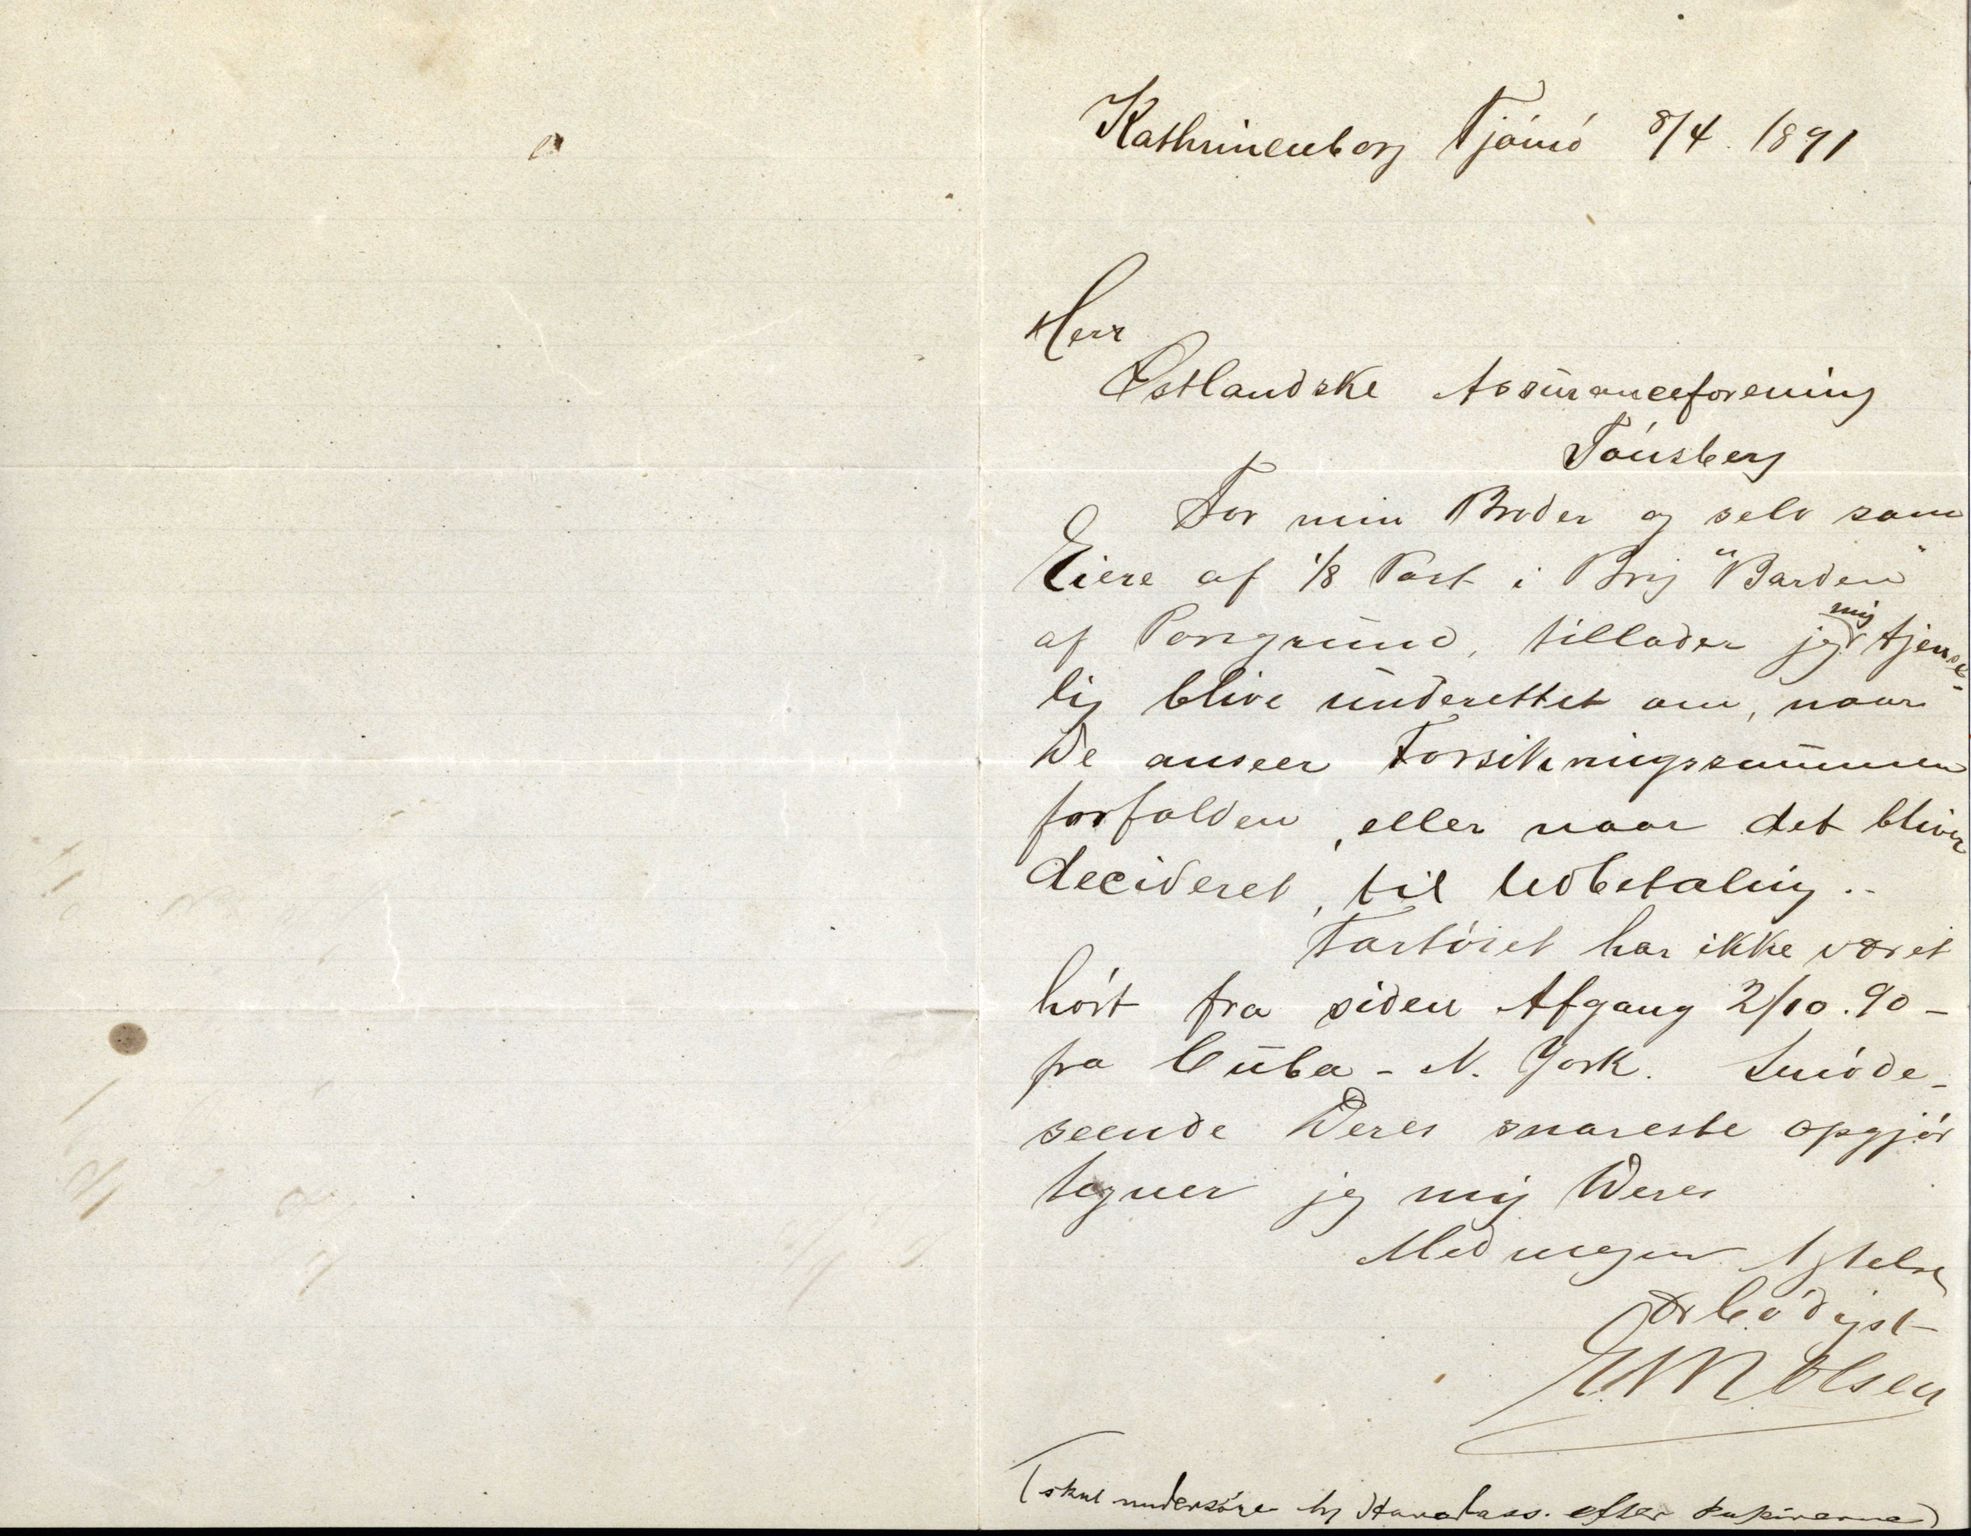 Kathrinenborg Tjømø 8/4. 1891
Herr
Østlandske Assuranceforening
Tønsberg
For min Broder og selv som
Eiere af 1/8 Part i Brig "Barden"
af Porsgrund, tillader jeg mig tjenst-
lig blive underettet om, naar
De anseer Forsikringssummen
forfalden, eller naar det bliver
decideret, til Udbetaling..
Fartøiet har ikke været
hørt fra siden Afgang 2/10.90 -
fra Cuba - N. York. Imøde-
seende Deres snareste opgjør
tegner jeg mig Deres
Med megen Agtelse
ærbødigst
E. M. Olsen
(skal undersøge efter papirerne)